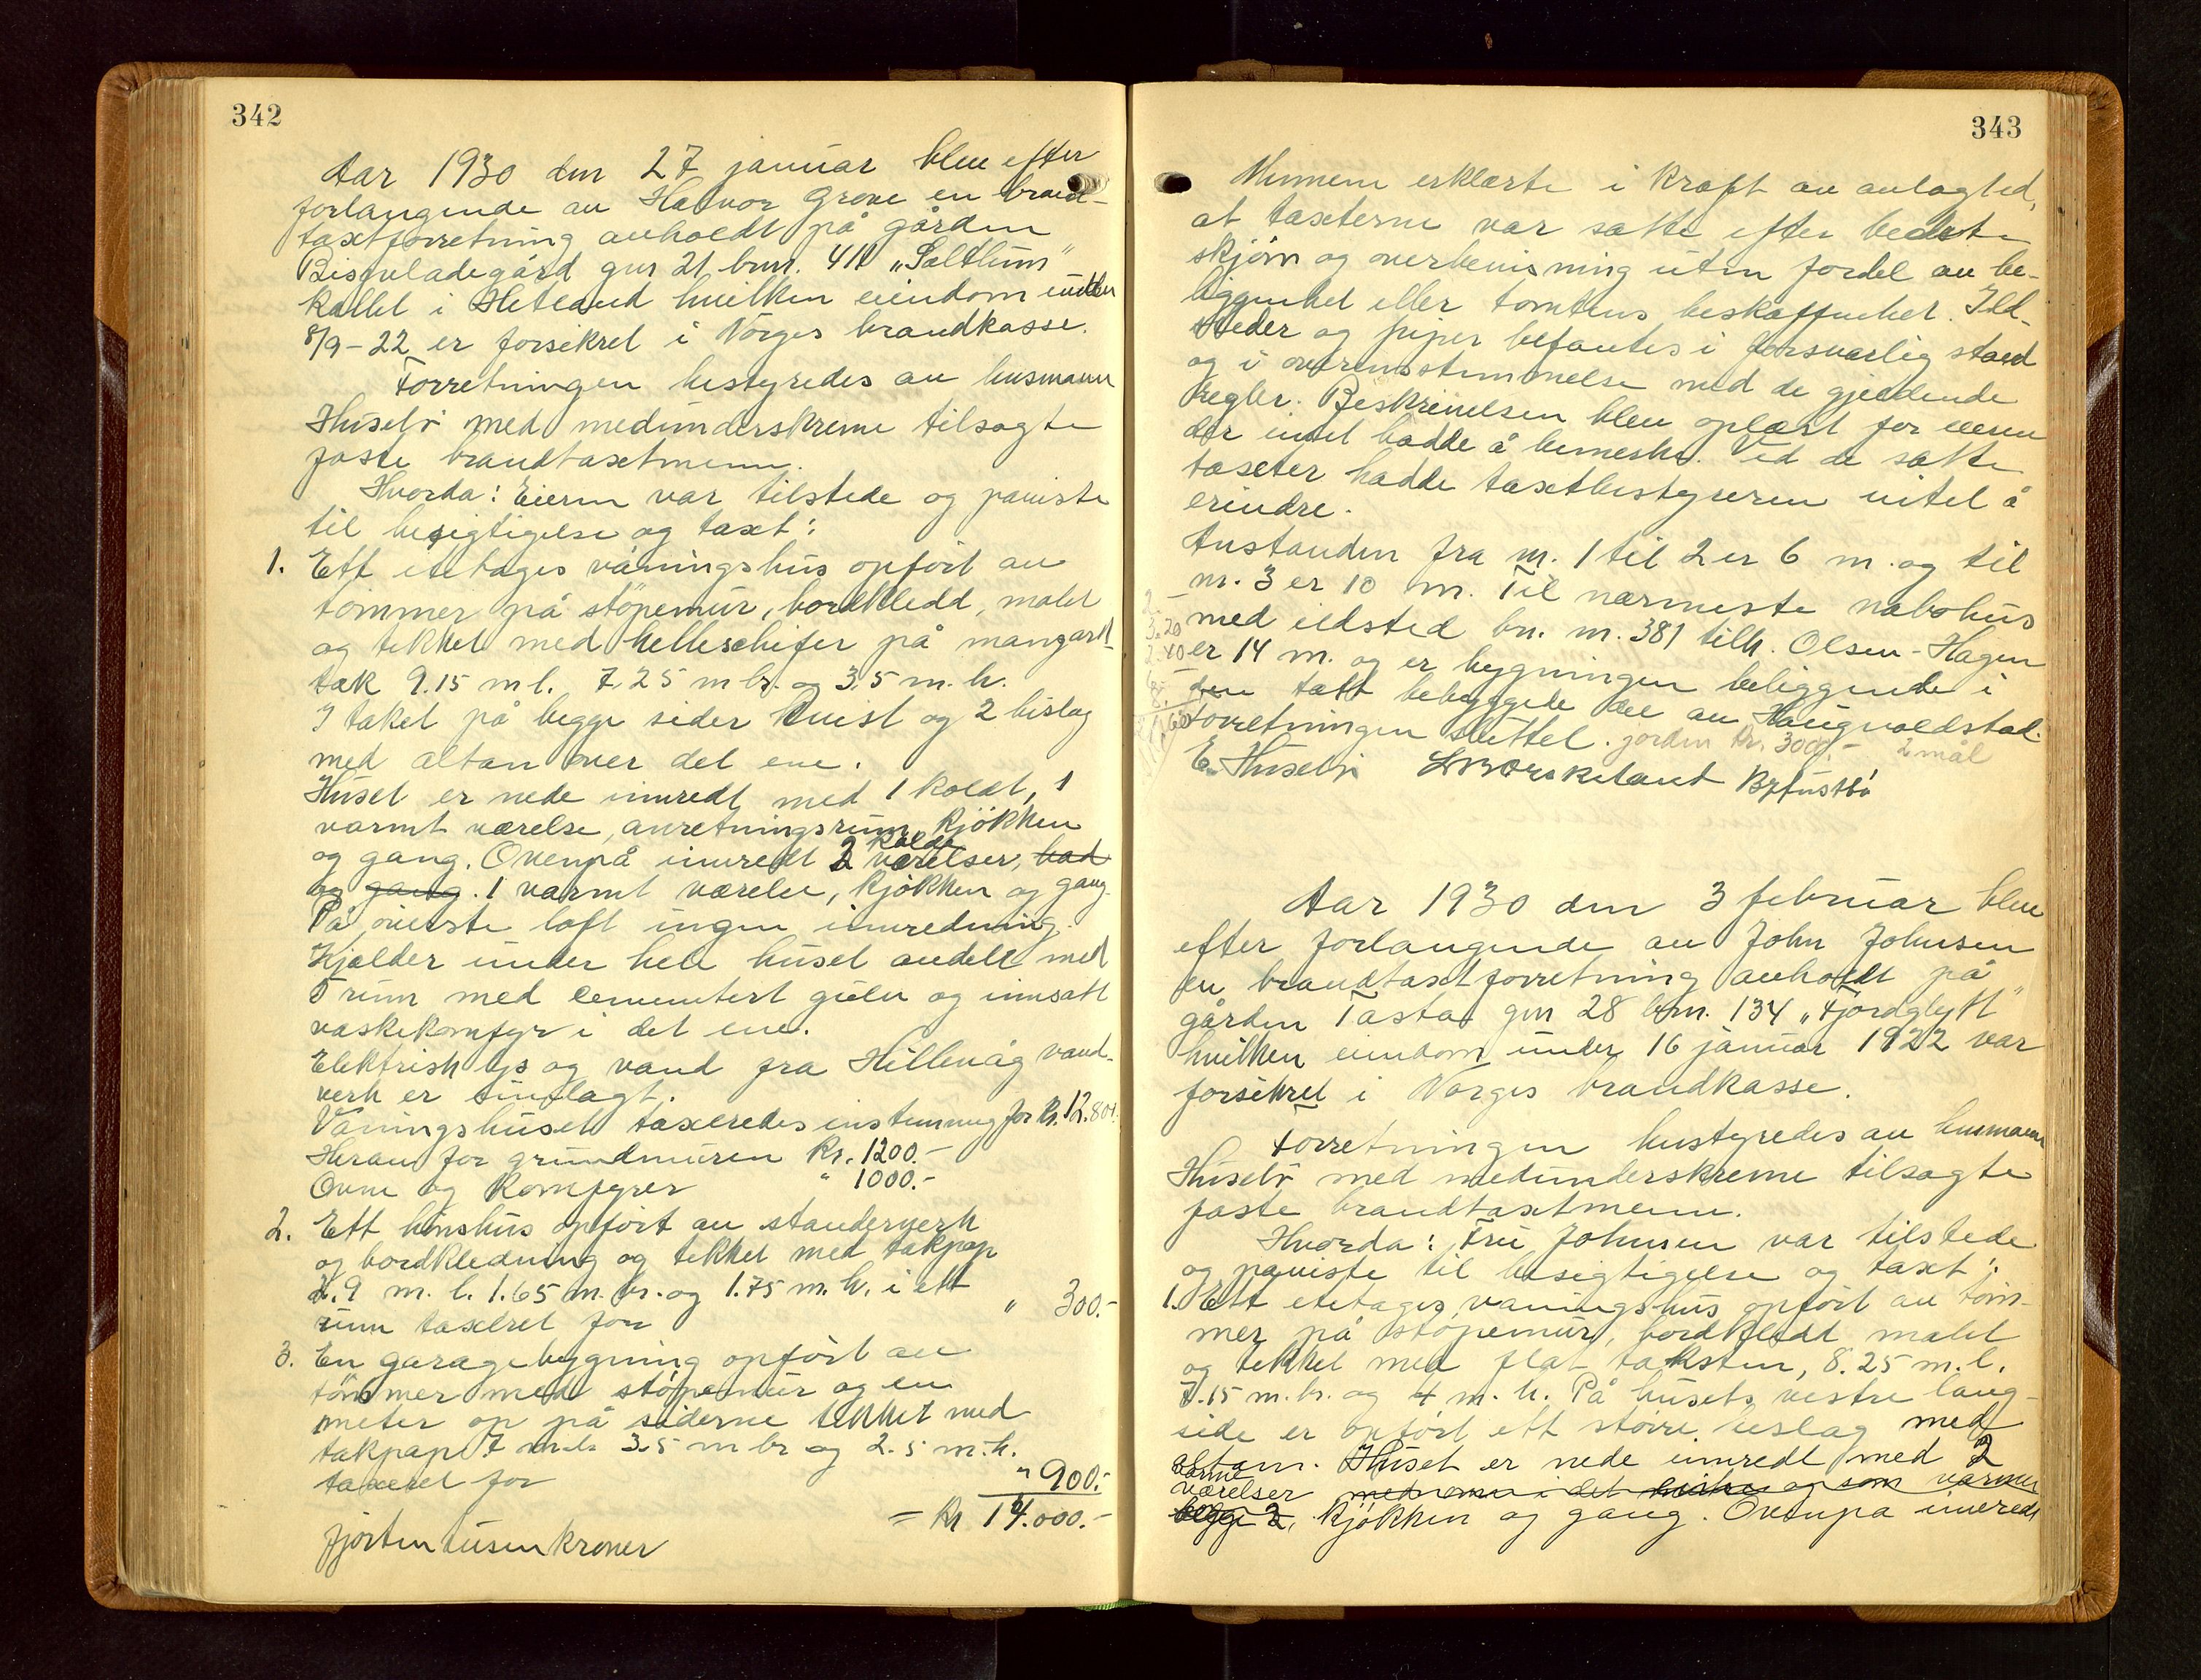 342
Aar 1930 den 27 januar blev efter
forlangende av Halvor Grove en brand-
taxtforretning avholdt på gården
Bispeladegård gnr 21 bnr. 411 „Soltun"
kallet i Hetland hvilken eiendom under
8/9-22 er forsikret i Norges brandkasse.
Forretningen bestyredes av lensmann
Husebø med medunderskrevne tilsagte
faste brandtaxtmenn.
Hvorda: Eieren var tilstede og paaviste
til besigtigelse og taxt:
1. Ett etetages våningshus opført av
tømmer på støpemur, bordkledd, malet
og tekket med helleschifer på mangard-
tak 9.15 m l. 7.25 m br. og 3.5 m. h.
I taket på begge sider kvist og 2 bislag
med altan over det ene.
Huset er nede innredt med 1 koldt, 1
varmt værelse, anretningsrum, kjøkken
og gang. Ovenpå innredt 2 kolde værelser, bad
og gang. 1 varmt værelse, kjøkken og gang.
På øverste loft ingen innredning.
Kjelder under hele huset avdelt med
5 rum med cementert gulv og innsatt
vaskekomfyr i det ene.
Elektrisk lys og vand fra Hillevåg vand-
verk er innlagt.
Våningshuset taxeredes enstemmig for kr. 12.800.
Herav for grundmuren kr. 1200.-
Ovne og komfyrer " 1000.-
2. Ett hønshus opført av standerverk
og bordkledning og tekket med takpap
2.9 m. l. 1.65 m. br. og 1.75 m. h. i ett
rum taxeret for " 300.-
3. En garagebygning opført av
tømmer med støpemur og en
meter op på siderne tekket med
takpap 7 m. l. 3.5 m br og 2.5 m. h.
taxeret for " 900.-
= kr 14.000.-
fjorten tusen kroner
343
Mennene erklærte i kraft av avlagt ed,
at taxterne var satte efter bedste
skjøn og overbevisning uten fordel av be-
liggenhet eller tomtens beskaffenhet. Ild-
steder og piper befantes i forsvarlig stand
og i overensstemmelse med de gjeldende
regler. Beskrivelsen blev oplæst for eieren
der intet hadde å bemerke. Ved de satte
taxter hadde taxtbestyreren intet å
erindre.
Avstanden fra nr. 1 til 2 er 6 m. og til
nr. 3 er 10 m. Til nærmeste nabohus
med ildsted bn. nr. 381 tilh. Olsen-Hagen
er 14 m. og er bygningen beliggende i
den tett bebyggede del av Haugvoldstad.
Forretningen sluttet. jorden kr. 3000.- 2 mål
E. Husebø
Aar 1930 den 3 februar blev
efter forlangende av John Johnsen
en brandtaxtforretning avholdt på
gården Tasta gnr 28 bnr. 134 „Fjordglytt"
hvilken eiendom under 16 januar 1922 var
forsikret i Norges brandkasse.
Forretningen bestyredes av lensmann
Husebø med medunderskrevne tilsagte
faste brandtaxtmenn.
Hvorda: Fru Johnsen var tilstede
og paaviste til besigtigelse og taxt:
1. Ett etetages våningshus opført av tøm-
mer på støpemur, bordkledt malet
og tekket med flat taksten, 8.25 m. l.
7.15 m. br. og 4 m. h. På husets vestre lang-
side er opført ett større bislag med
altan. Huset er nede innredt med 2
varme
værelser
kjøkken og gang. Ovenpå innredt